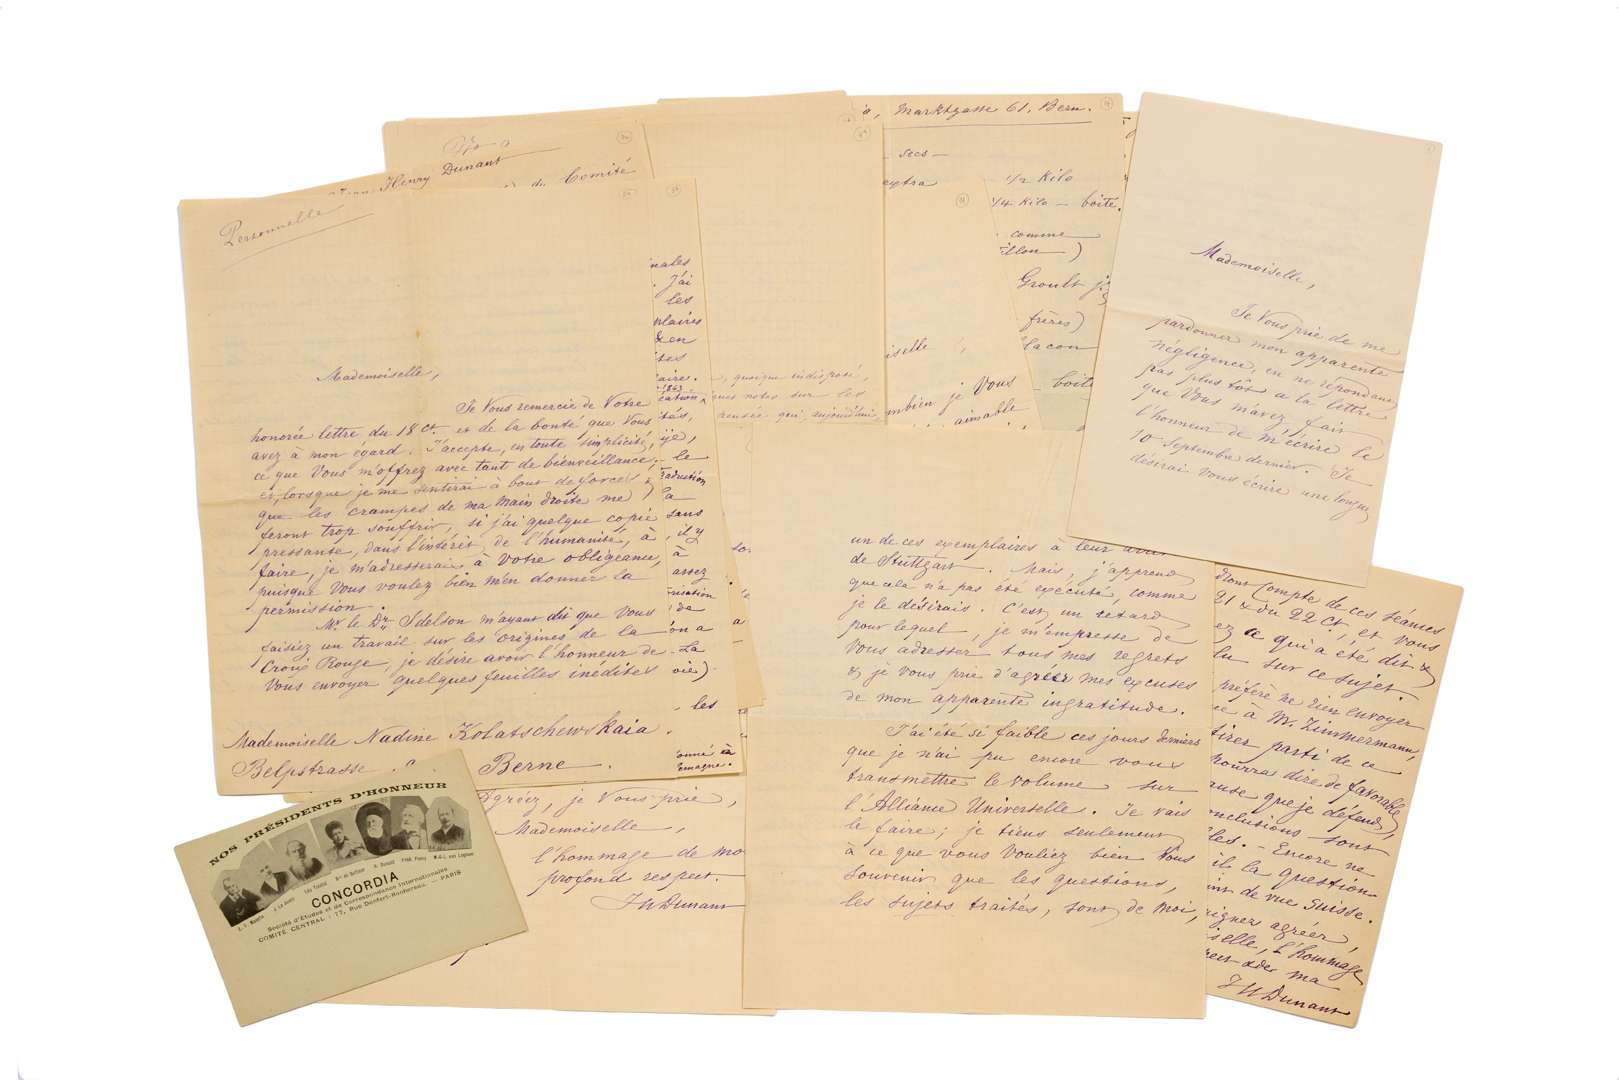 Personnelle
Mademoiselle,
Je Vous remercie de Votre
honorée lettre du 18 Ct. et de la bonté que Vous
avez à mon égard. J'accepte, en toute simplicité,
ce que Vous m'offrez avec tant de bienveillance,
et, lorsque je me sentirai à bout de forces &
que les crampes de ma main droite me
feront trop souffrir, si j'ai quelque copie
pressante, dans l'intérêt de l'humanité, à
faire, je m'adresserai à Votre obligeance,
puisque Vous voulez bien m'en donner la
permission.
Mr. le Dr. Idelson m'ayant dit que Vous
faisiez un travail sur les origines de la
Croix Rouge, je désire avoir l'honneur de
Vous envoyer quelques feuilles inédites
Mademoiselle Nadine Kolatschewskaia.
Belpstrasse
Berne.
Henry Dunant
du Comité
inales
J'ai
les
plaires
& en
aire.
1863
le
traduction
la
sans
il y
à
assez
de
on a
La
oie).
les
onné à
emagne.
quoique indisposé,
ques notes sur les
pensée qui, aujourd'hui
Marktgasse 61. Bern.
secs
extra 1/2 Kilo
1/4 Kilo - boite.
comme
illon)
Groult
frères)
flacon
boite
iselle,
mbien je Vous
aimable
Mademoiselle,
Je Vous prie de me
pardonner mon apparente
négligence, en ne répondant
pas plus tôt à la lettre
que Vous m'avez fait
l'honneur de m'écrire le
10 Septembre dernier. Je
désirai vous écrire une longue
un de ces exemplaires à leur
de Stuttgart. Mais, j'apprend
que cela n'a pas été exécuté, comme
je le désirais. C'est un retard
pour lequel, je m'empresse de
Vous adresser tous mes regrets
& je vous prie d'agréer mes excuses
de mon apparente ingratitude.
J'ai été si faible ces jours derniers
que je n'ai pu encore vous
transmettre le volume sur
l'Alliance Universelle. Je vais
le faire; je tiens seulement
à ce que vous Vouliez bien Vous
souvenir que les questions,
les sujets traités, sont de moi,
Compte de ces séances
21 & du 22 Ct, et vous
ez ce qui a été dit &
lu sur ce sujet.
préfère ne rien envoyer
à M. Zimmermann,
tirer parti de ce
pourra dire de favorable,
ause que je défend,
onclusions sont
les. - Encore ne
il la question
int de vue Suisse.
aignez agréer,
iselle, l'hommage
ma
JH Dunant
Agréez, je Vous prie,
Mademoiselle,
l'hommage de mo
profond respect.
JH Dunant
NOS PRÉSIDENTS D'HONNEUR
Fréd. Passy
CONCORDIA
Société d'Études et de Correspondance Internationales
COMITÉ CENTRAL : 77, Rue Denfert-Rochereau. — PARIS